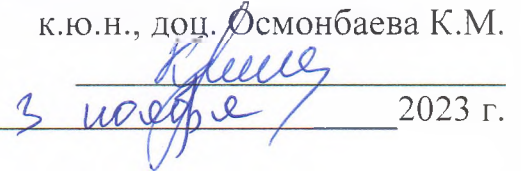 к.ю.н., доц. Осмонбаева К.М.
3 ноября 2023 г.